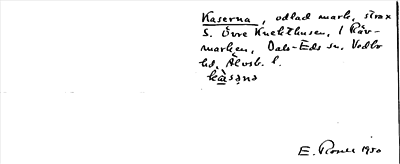 Kaserna, odlad mark, strax
S. Övre Knekthusen, i Räv-
marken, Dals-Eds sn. Vedbo
hd, Älvsb. l.
kàsạṇa
E. 1950